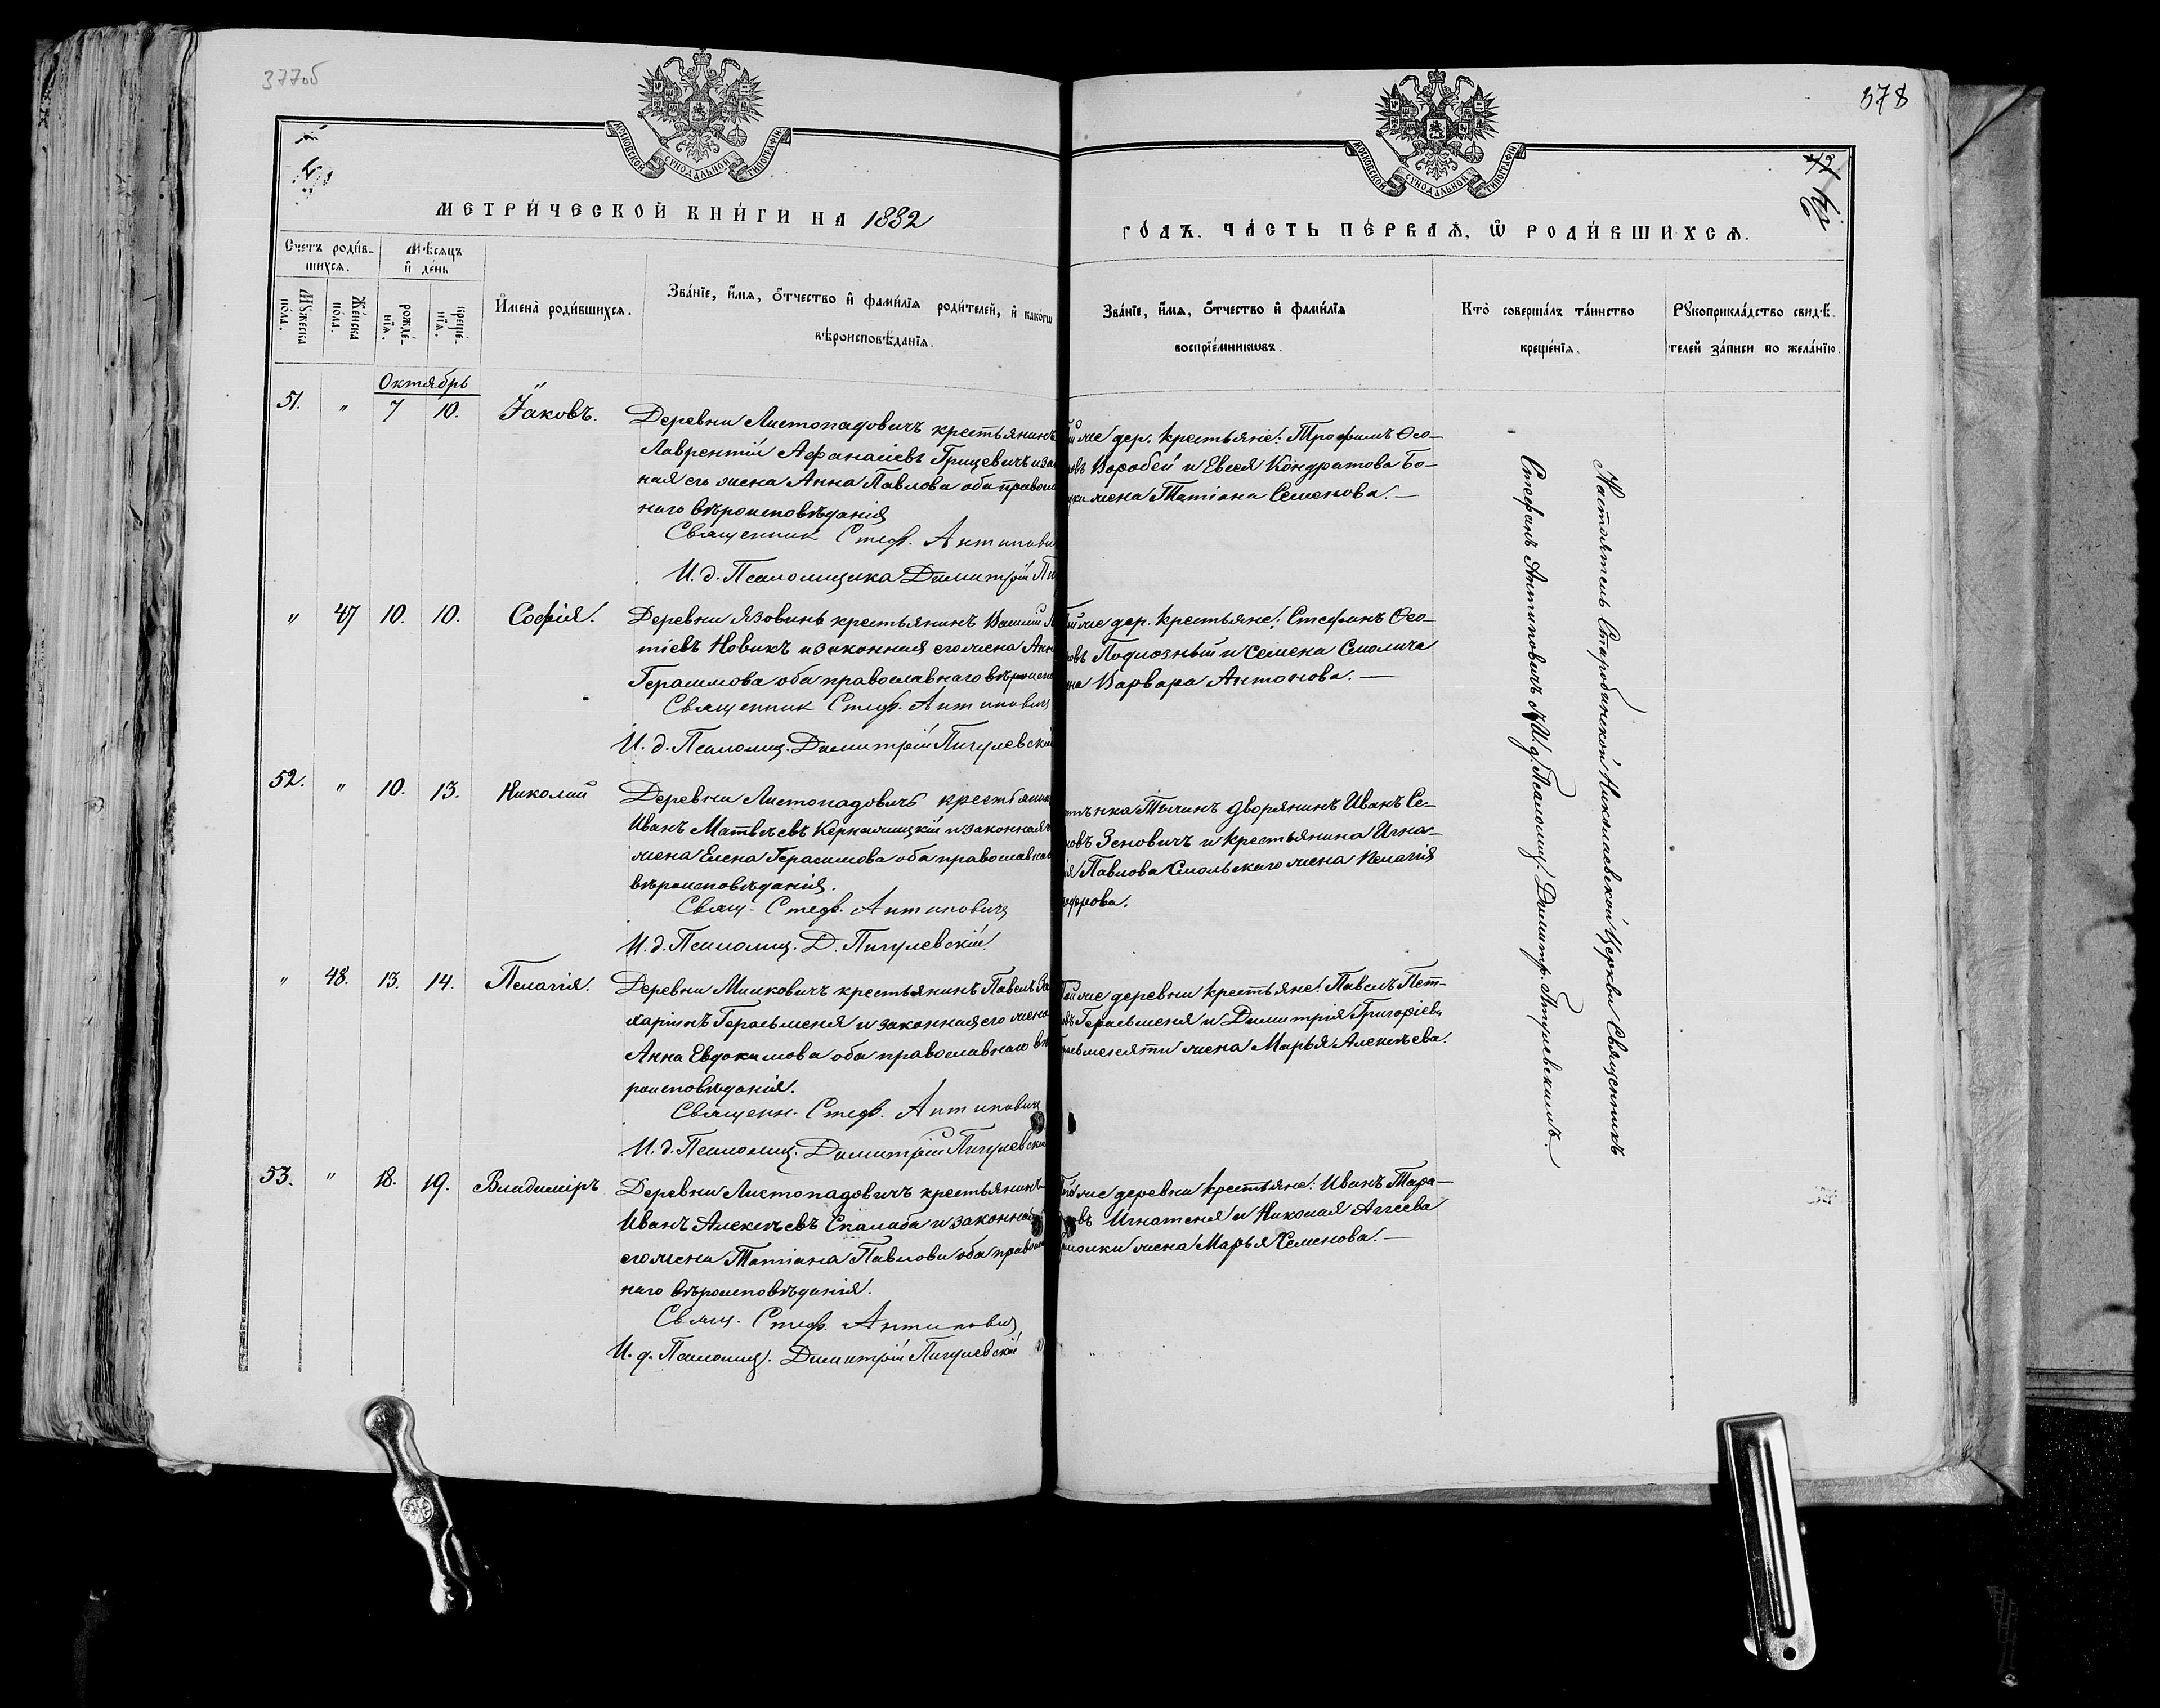 377об
378
МОСКОВСКОЙ СѴНОДАЛЬНОЙ ТИПОГРАФІИ
МОСКОВСКОЙ СѴНОДАЛЬНОЙ ТИПОГРАФІИ
МЕТРИ́ЧЕСКОЙ КНИ́ГИ НА 1882
ГО́ДЪ. ЧА́СТЬ ПЕ́РВАЯ, Ѡ РОДИ́ВШИХСЯ.
Счетъ роди́в-
шихся.
Мѣсяцъ
и де́нь
Мꙋжеска
по́ла.
Же́нска
по́ла.
рожде́-
нїя.
креще́-
нїя.
И҆мена̀ роди́вшихся.
Зва́нїе, и҆́мя, ѻ҆́тчество и҆ фами́лїя роди́телей, и҆ како́гѡ
вѣроисповѣ́данїя.
Зва́нїе, и҆́мя, ѻ҆́тчество и҆ фами́лїя
воспрїе́мникѡвъ.
Кто̀ соверша́лъ та́инство
креще́нїя.
Рꙋкоприкла́дство свидѣ́-
телей за́писи по жела́нїю.
Октябрь
51. " 7 10. Іаковъ.
Деревни Листопадовичъ крестьянинъ
Лаврентій Афанасіевъ Грицевичъ и за
ная его жена Анна Павлова оба правосл
наго вѣроисповѣданія
Священник Стеф. Антипович
И. д. Псаломщика Димитрій Пи
же дер. крестьяне: Трофимъ Ѳео-
овъ Воробей и Евсея Кондратова Бо-
жена Татіана Семенова. —
" 47 10. 10. Софія.
Деревни Язовинь крестьянинъ Василій
тіевъ Новикъ и законная его жена Анн
Герасимова оба православнаго вѣроиспо
Священник Стеф. Антипович
И. д. Псаломщ. Димитрій Пигулевскій
же дер. крестьяне: Стефанъ Ѳео-
овъ Подлозный и Семена Смолича
на Варвара Антонова. —
52. " 10. 13. Николай
Деревни Листопадовичъ крестьянин
Иванъ Матвѣевъ Кернажицкій и законная
жена Елена Герасимова оба православнаго
вѣроисповѣданія.
Свящ. Стеф. Антипович
И. д. Псаломщ. Д. Пигулевскій.
Тычинъ дворянинъ Иванъ Се-
новъ Зеновичъ и крестьянина Игна-
ія Павлова Смольскаго жена Пелагія
одорова.
" 48. 13. 14. Пелагія.
Деревни Милковичъ крестьянинъ Павелъ За
харіинъ Герасьменя и законная его жена
Анна Евдокимова оба православнаго вѣ
роисповѣданія.
Священн. Стеф. Антипович
И. д. Псаломщ. Димитрій Пигулевскій
Той же деревни крестьяне: Павелъ Пет-
овъ Герасьменя и Димитрія Григоріева
расьменяти жена Марья Алексѣева.
53. " 18. 19. Владиміръ
Деревни Листопадовичъ крестьянинъ
Иванъ Алексѣевъ Скалаба и законная
его жена Татіана Павлова оба правосл
наго вѣроисповѣданія.
Свящ. Стеф. Антипович
И. д. Псаломщ. Димитрій Пигулевскій
Той же деревни крестьяне: Иванъ Тара-
овъ Игнатеня и Николая Аггеева
жена Марья Семенова. —
Настоятель Старобинской Николаевской Церкви Священникъ
Стефанъ Антиповичъ съ И. д. Псаломщ. Димитр. Пигулевскимъ.